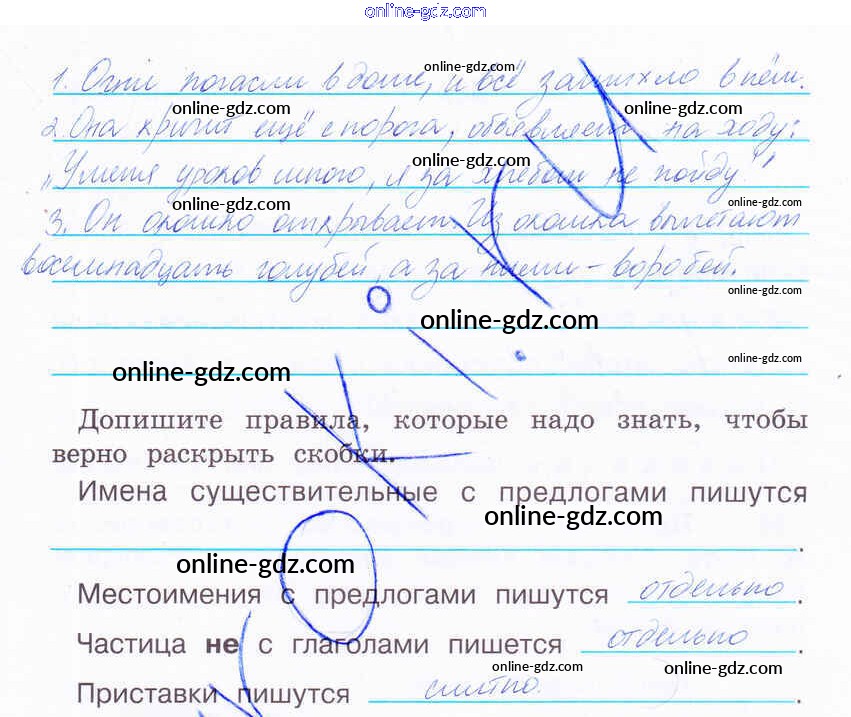 online-gdz.com
1. Огни погасли в доме, и всё затихло в нём.
online-gdz.com
online-gdz.com online-gdz.com
2. Она кричит ещё с порога, объявляет на ходу:
online-gdz.com
„У меня уроков много, я за хлебом не пойду!"
online-gdz.com online-gdz.com
3. Он окошко открывает. Из окошка вылетают
восемнадцать голубей, а за ними – воробей.
online-gdz.com
online-gdz.com
online-gdz.com
online-gdz.com
Допишите правила, которые надо знать, чтобы
верно раскрыть скобки.
Имена существительные с предлогами пишутся
online-gdz.com
.
online-gdz.com
Местоимения с предлогами пишутся отдельно.
Частица не с глаголами пишется отдельно.
online-gdz.com online-gdz.com
Приставки пишутся слитно.